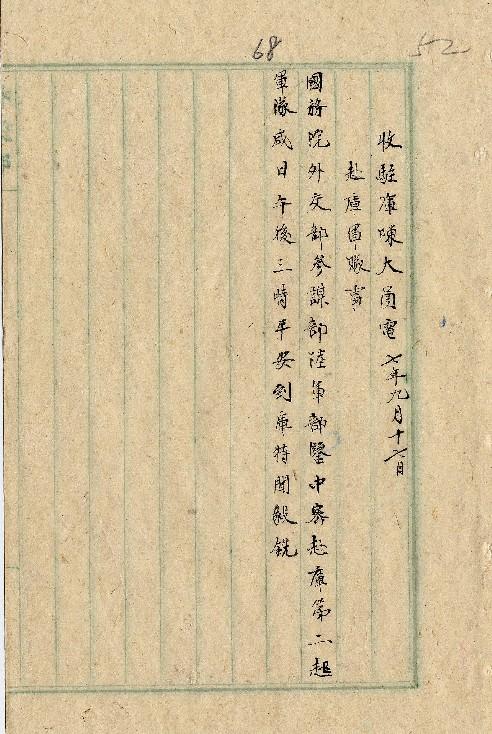 68
52
收駐庫陳大員電 七年九月十七日
赴庫軍隊事
國務院外交部參謀部陸軍部鑒中密赴庫第二起
軍隊咸日午後三時平安到庫特聞毅銑